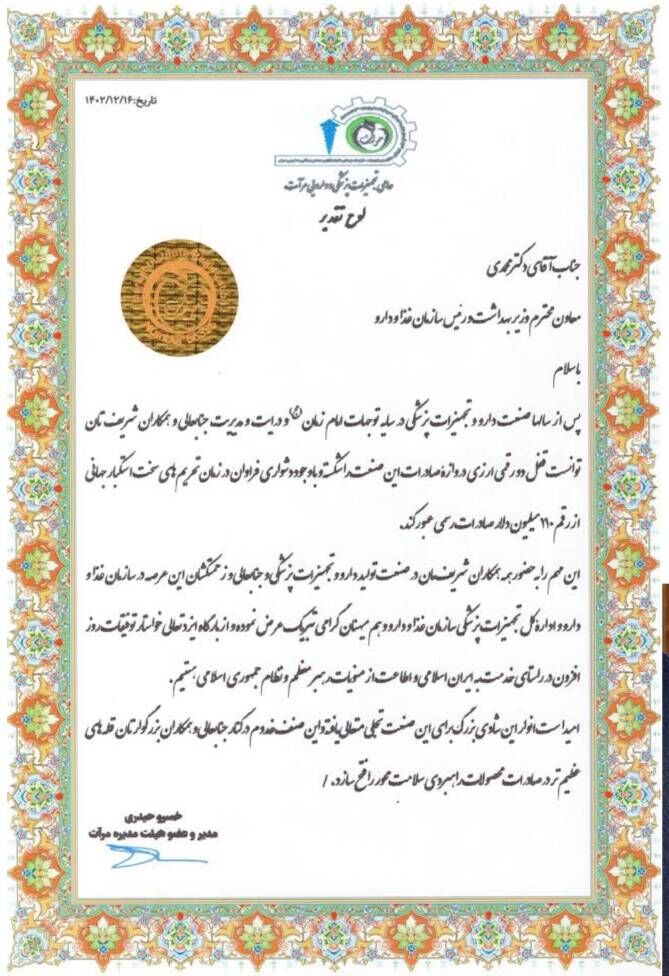 تاریخ:۱۴۰۲/۱۲/۱۶
حامی تجهیزات پزشکی و دارویی مرآت
لوح تقدیر
جناب آقای دکتر محمدی
معاون محترم وزیر بهداشت و رئیس سازمان غذا و دارو
با سلام
پس از سالها صنعت دارو و تجهیزات پزشکی در سایه توجهات امام زمان (عج) و درایت و مدیریت جنابعالی و همکاران شریف تان
توانست قفل دو رقمی ارزی دروازه صادرات این صنعت را شکسته و با وجود دشواری فراوان در زمان تحریم های سخت استکبار جهانی
از رقم ۱۱۰ میلیون دلار صادرات رسمی عبور کند.
این مهم را به حضور همه همکاران شریف مان در صنعت تولید دارو و تجهیزات پزشکی و جنابعالی و زحمتکشان این عرصه در سازمان غذا و
دارو و اداره کل تجهیزات پزشکی سازمان غذا و دارو و هم میهنان گرامی تبریک عرض نموده و از بارگاه ایزد تعالی خواستار توفیقات روز
افزون در راستای خدمت به ایران اسلامی و اطاعت از منویات رهبر معظم و نظام جمهوری اسلامی هستیم.
امید است انوار این شادی بزرگ برای این صنعت تجلی متعالی یافته و این صنف خدوم در کنار جنابعالی و همکاران بزرگوارتان قله های
عظیم تر در صادرات محصولات راهبردی سلامت محور را فتح سازد. /
خسرو حیدری
مدیر و عضو هیئت مدیره مرآت